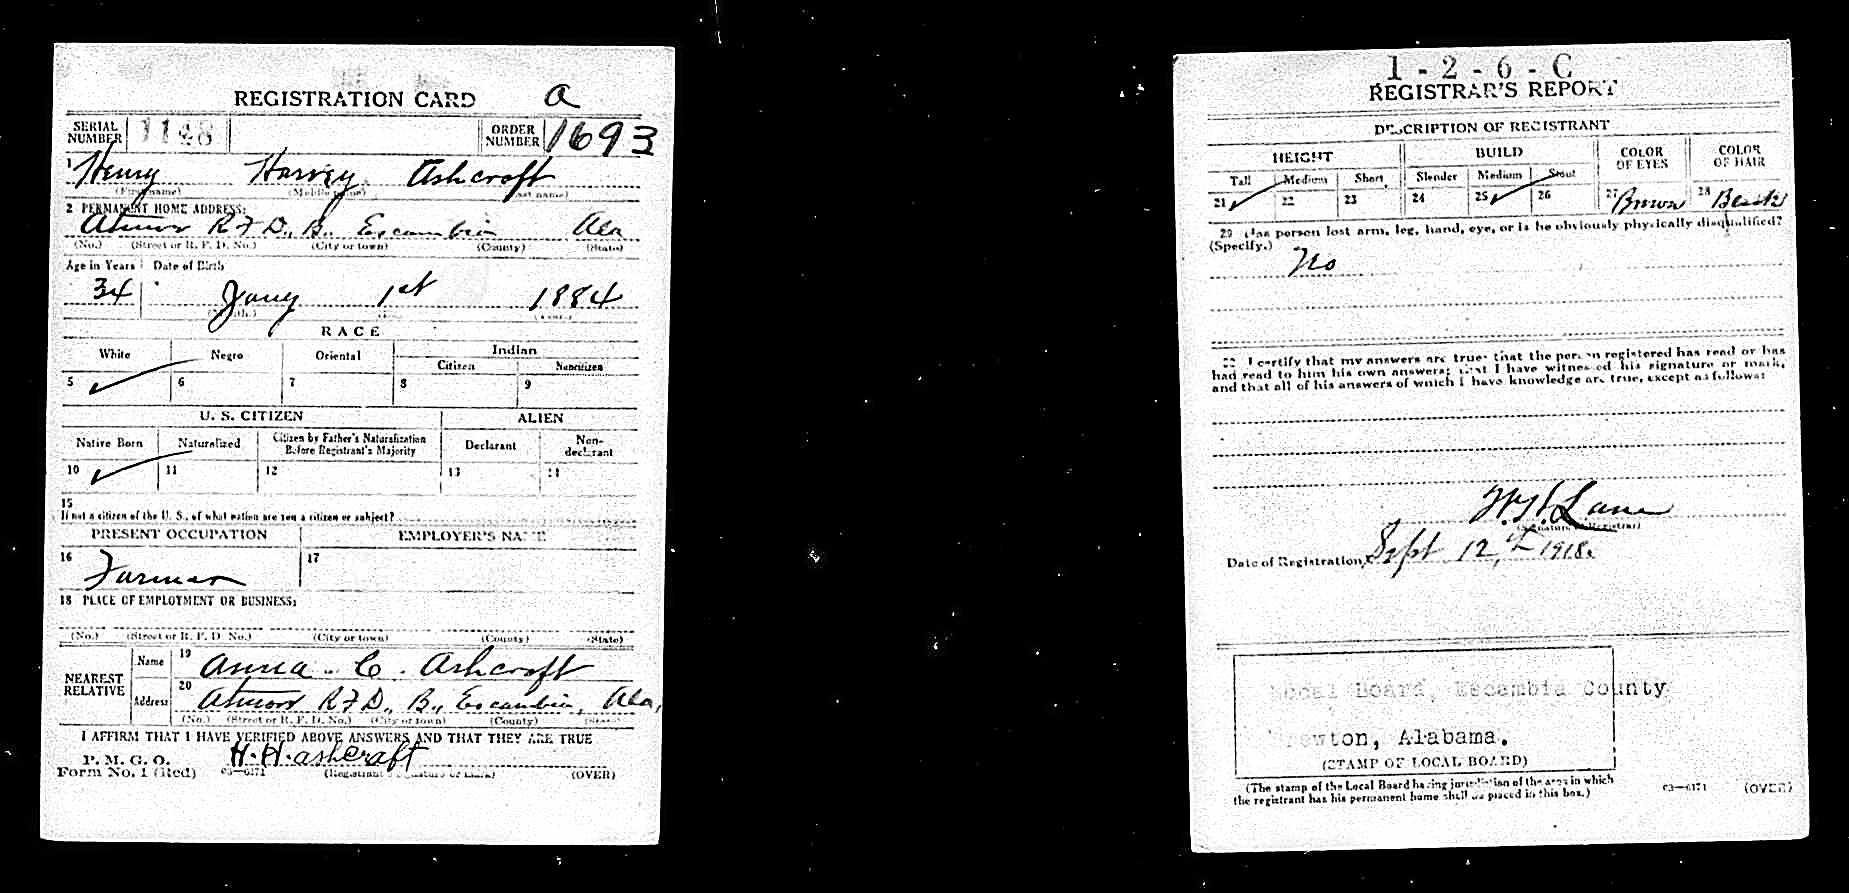 REGISTRATION CARD a
SERIAL NUMBER 1148 ORDER NUMBER 1693
1 Henry Harvey Ashcroft
(First name) (Middle name) (Last name)
2 PERMANENT HOME ADDRESS:
Atmor R F D., B., Escambia Ala
(No.) (Street or R. F. D. No.) (City or town) (County) (State)
Age in Years Date of Birth
34 Jany 1st 1884
RACE
White Negro Oriental Indian
Citizen Noncitizen
5 6 7 8 9
U. S. CITIZEN ALIEN
Native Born Naturalized Citizen by Father's Naturalization Before Registrant's Majority Declarant Non-declarant
10 11 12 13 14
15
If not a citizen of the U. S., of what nation are you a citizen or subject?
PRESENT OCCUPATION EMPLOYER'S NAME
16 Farmer 17
18 PLACE OF EMPLOYMENT OR BUSINESS:
(No.) (Street or R. F. D. No.) (City or town) (County) (State)
NEAREST RELATIVE Name 19 Anna C. Ashcroft
Address 20 Atmor R F D., B., Escambia, Ala,
(No.) (Street or R. F. D. No.) (City or town) (County) (State)
I AFFIRM THAT I HAVE VERIFIED ABOVE ANSWERS AND THAT THEY ARE TRUE
P. M. G. O.
Form No. 1 (Red) 03—6171 H. H. ashcraft (Registrant's signature or mark) (OVER)
1-2-6-C
REGISTRAR'S REPORT
DESCRIPTION OF REGISTRANT
HEIGHT BUILD COLOR OF EYES COLOR OF HAIR
Tall Medium Short Slender Medium Stout
21 22 23 24 25 26 27 Brown 28 Black
29 Has person lost arm, leg, hand, eye, or is he obviously physically disqualified?
(Specify.) No
30 I certify that my answers are true; that the person registered has read or has
had read to him his own answers; that I have witnessed his signature or mark,
and that all of his answers of which I have knowledge are true, except as follows:
Lane
(Signature of Registrar)
Date of Registration Sept 12th, 1918.
Local Board, Escambia County
Brewton, Alabama.
(STAMP OF LOCAL BOARD)
(The stamp of the Local Board having jurisdiction of the area in which
the registrant has his permanent home shall be placed in this box.)
03—6171 (OVER)